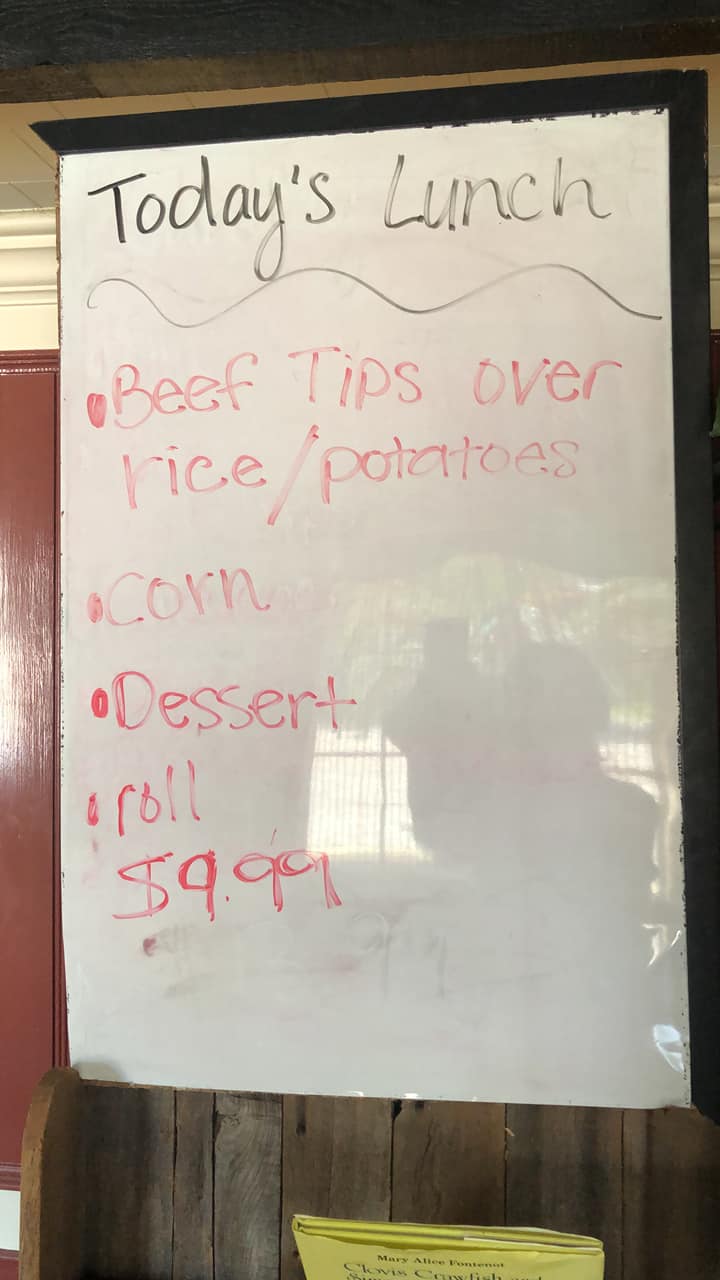 Today's Lunch
• Beef Tips over
rice/potatoes
• Corn
• Dessert
• roll
$9.99
Mary Alice Fontenot
Clovis Crawfish and